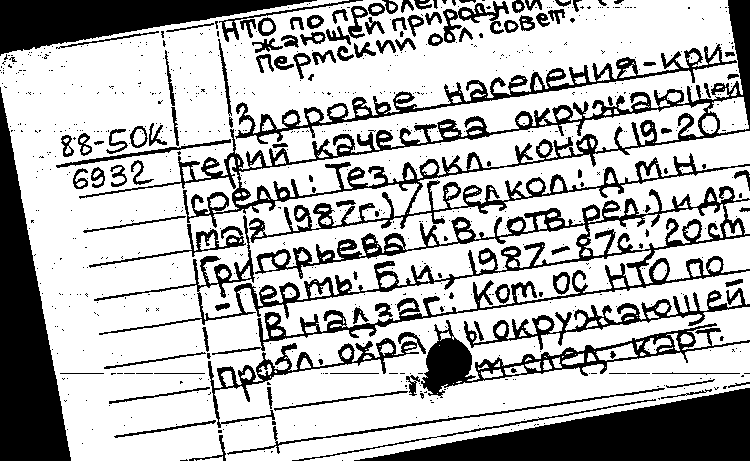 НТО по пробле
жающей природной ср
Пермский обл. совет.
Здоровье населения-кри-
88-50К
терий качества окружающей
6932
среды: Тез. докл. конф. (19-20
мая 1987г.)/[Редкол.: д.м.н.
Григорьева К.В. (отв. ред.) и др.]
.-Пермь: Б.и., 1987.-87с.; 20см
В надзаг.: Кот. ОС НТО по
пробл. охраны окружающей
см.след. карт.